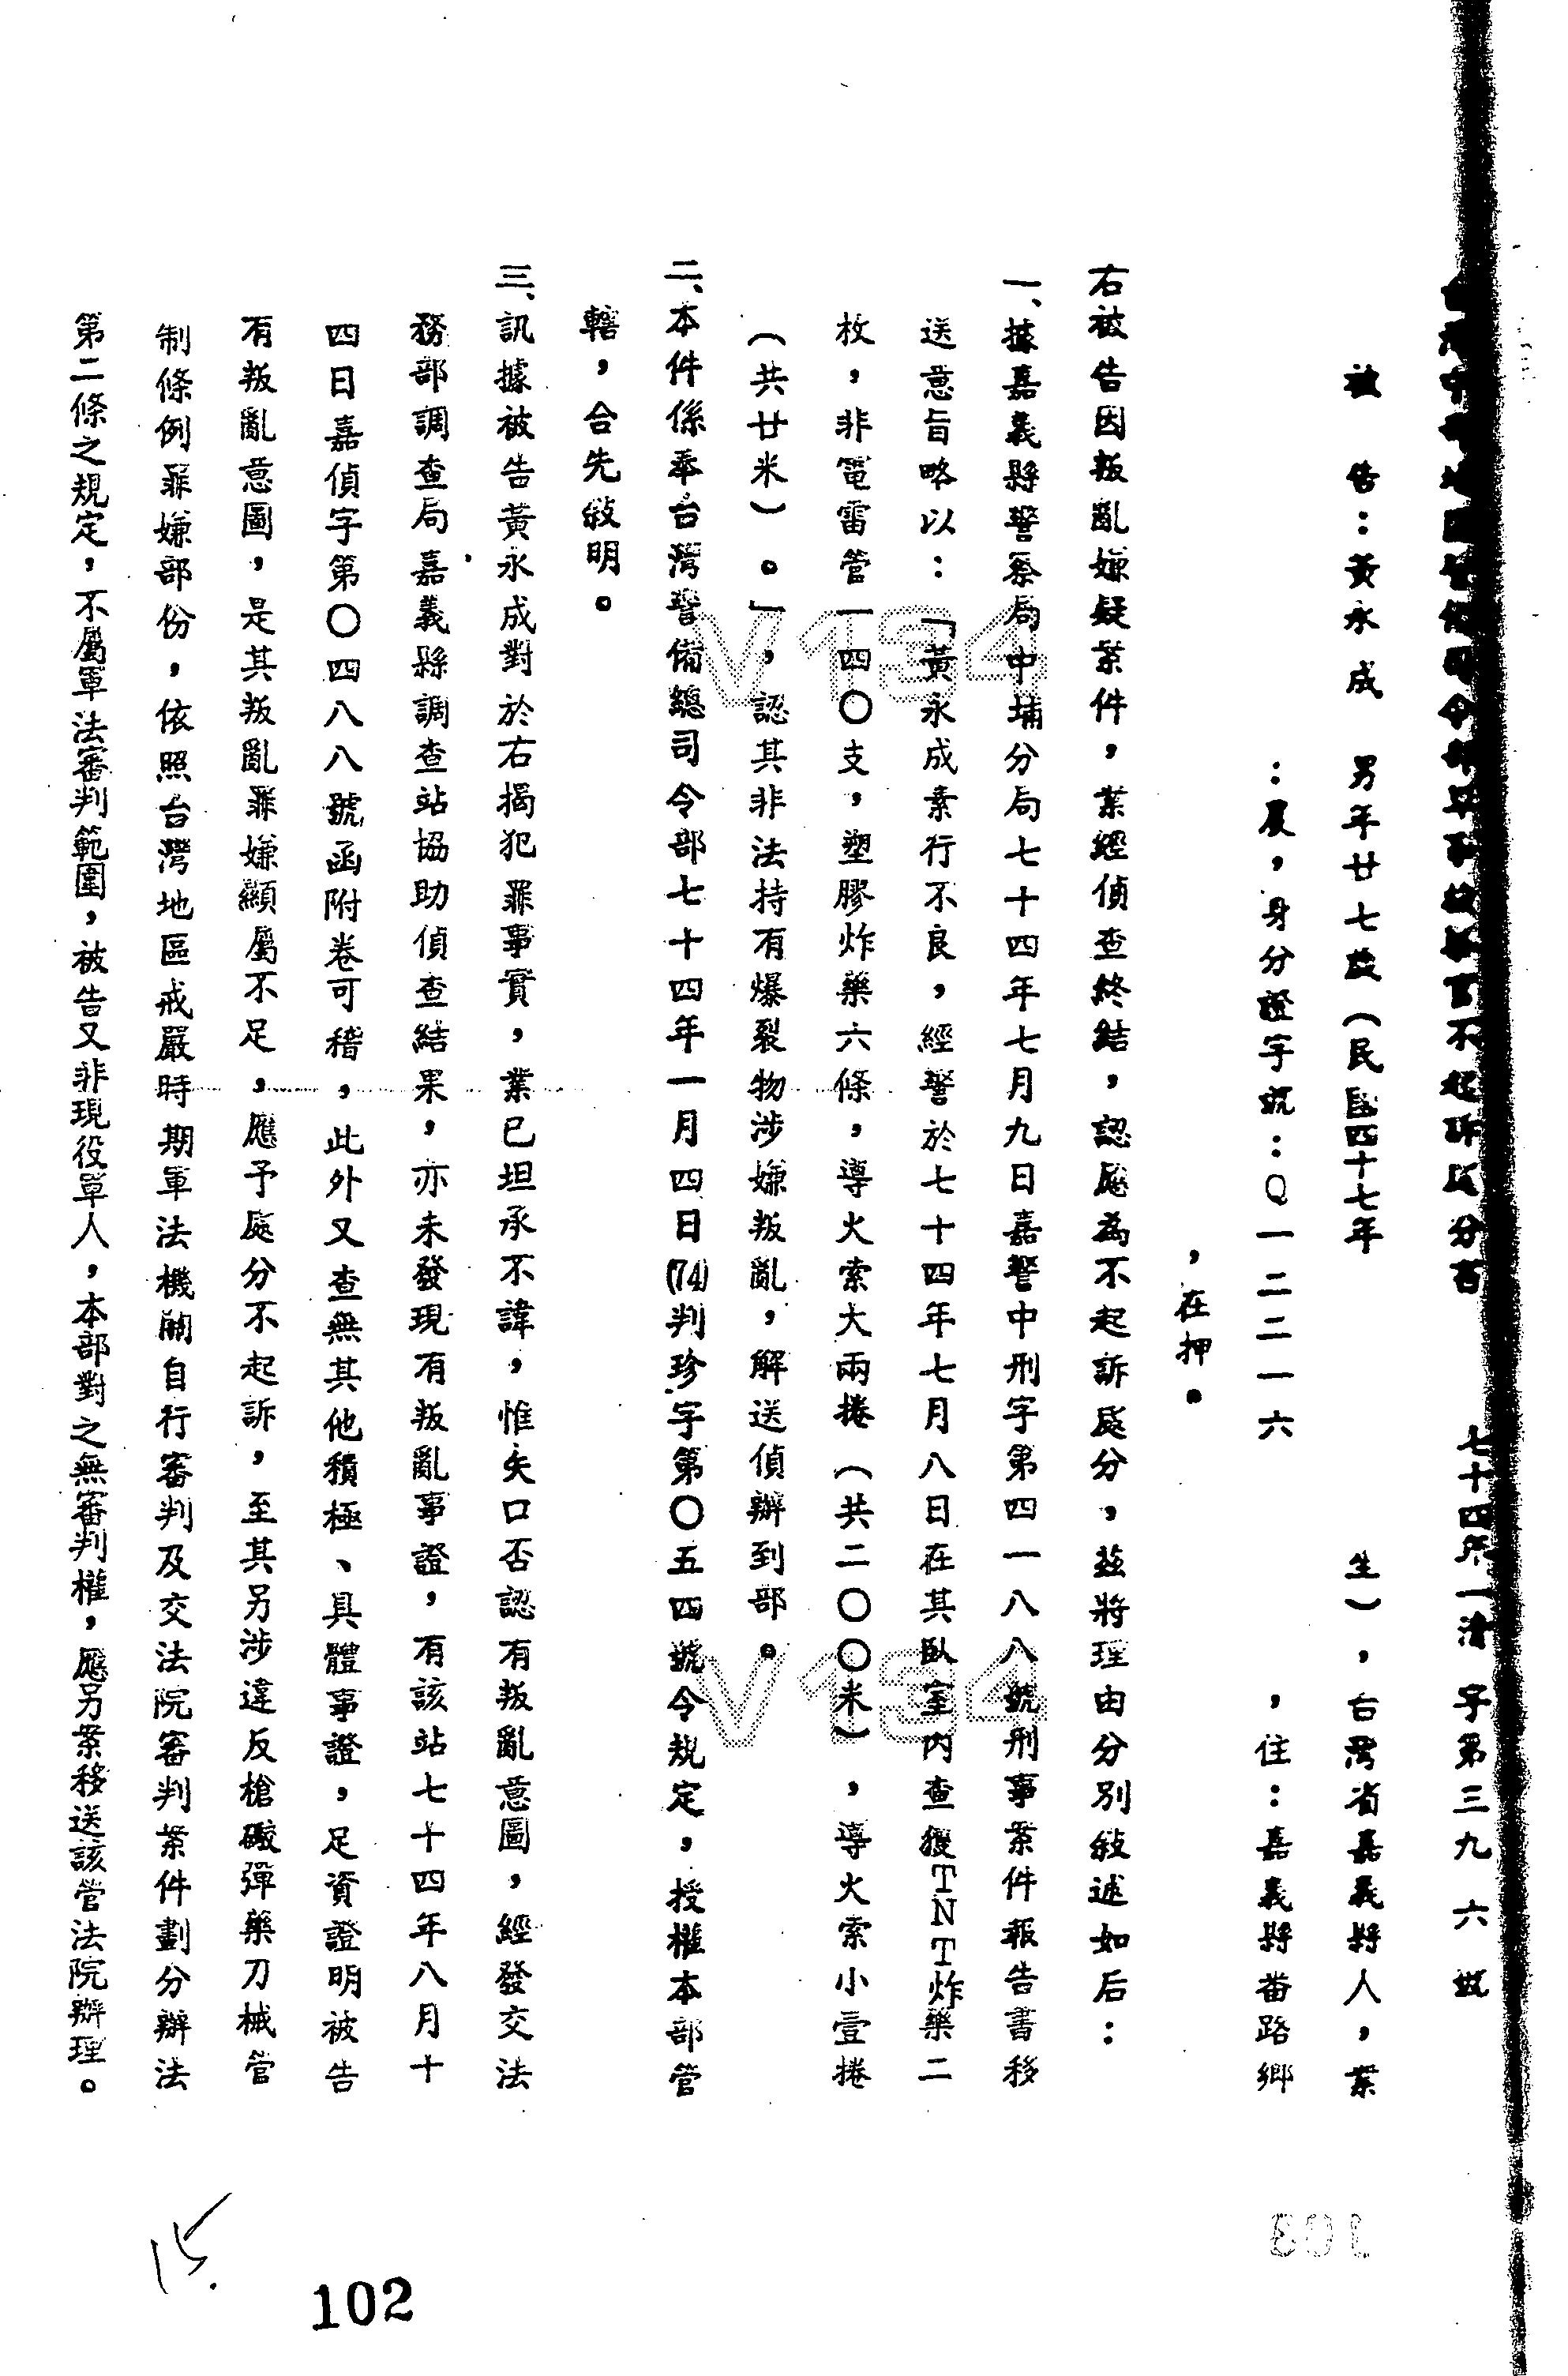 不起訴處分書
七十四年一清字第三九六號
被告：黃永成 男年廿七歲（民國四十七年 生），台灣省嘉義縣人，業
：農，身分證字號：Q一二二一六 ，住：嘉義縣番路鄉
，在押。
右被告因叛亂嫌疑案件，業經偵查終結，認應為不起訴處分，茲將理由分別敍述如后：
一、據嘉義縣警察局中埔分局七十四年七月九日嘉警中刑字第四一八八號刑事案件報告書移
送意旨略以：「黃永成素行不良，經警於七十四年七月八日在其臥室內查獲TNT炸藥二
枚，非電雷管一四〇支，塑膠炸藥六條，導火索大兩捲（共二〇〇米），導火索小壹捲
（共廿米）。」，認其非法持有爆裂物涉嫌叛亂，解送偵辦到部。
二、本件係奉台灣警備總司令部七十四年一月四日(74)判珍字第〇五四號令規定，授權本部管
轄，合先敍明。
三、訊據被告黃永成對於右揭犯罪事實，業已坦承不諱，惟矢口否認有叛亂意圖，經發交法
務部調查局嘉義縣調查站協助偵查結果，亦未發現有叛亂事證，有該站七十四年八月十
四日嘉偵字第〇四八八號函附卷可稽，此外又查無其他積極、具體事證，足資證明被告
有叛亂意圖，是其叛亂罪嫌顯屬不足，應予處分不起訴，至其另涉違反槍礮彈藥刀械管
制條例罪嫌部份，依照台灣地區戒嚴時期軍法機關自行審判及交法院審判案件劃分辦法
第二條之規定，不屬軍法審判範圍，被告又非現役軍人，本部對之無審判權，應另案移送該管法院辦理。
V134
V134
15.
102